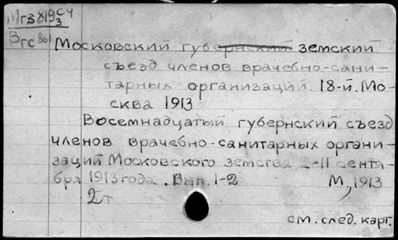 Мгз 819 с4/3
Вгс 861
Московский губернский земский
съезд членов врачебно-сани-
тарных организаций. 18-й. Мо-
сква 1913
Восемнадцатый губернский съезд
членов врачебно-санитарных органи-
заций Московского земства 2-11 сентя-
бря 1913 года. Вып. 1-2 М, 1913
2т
см. след. карт.